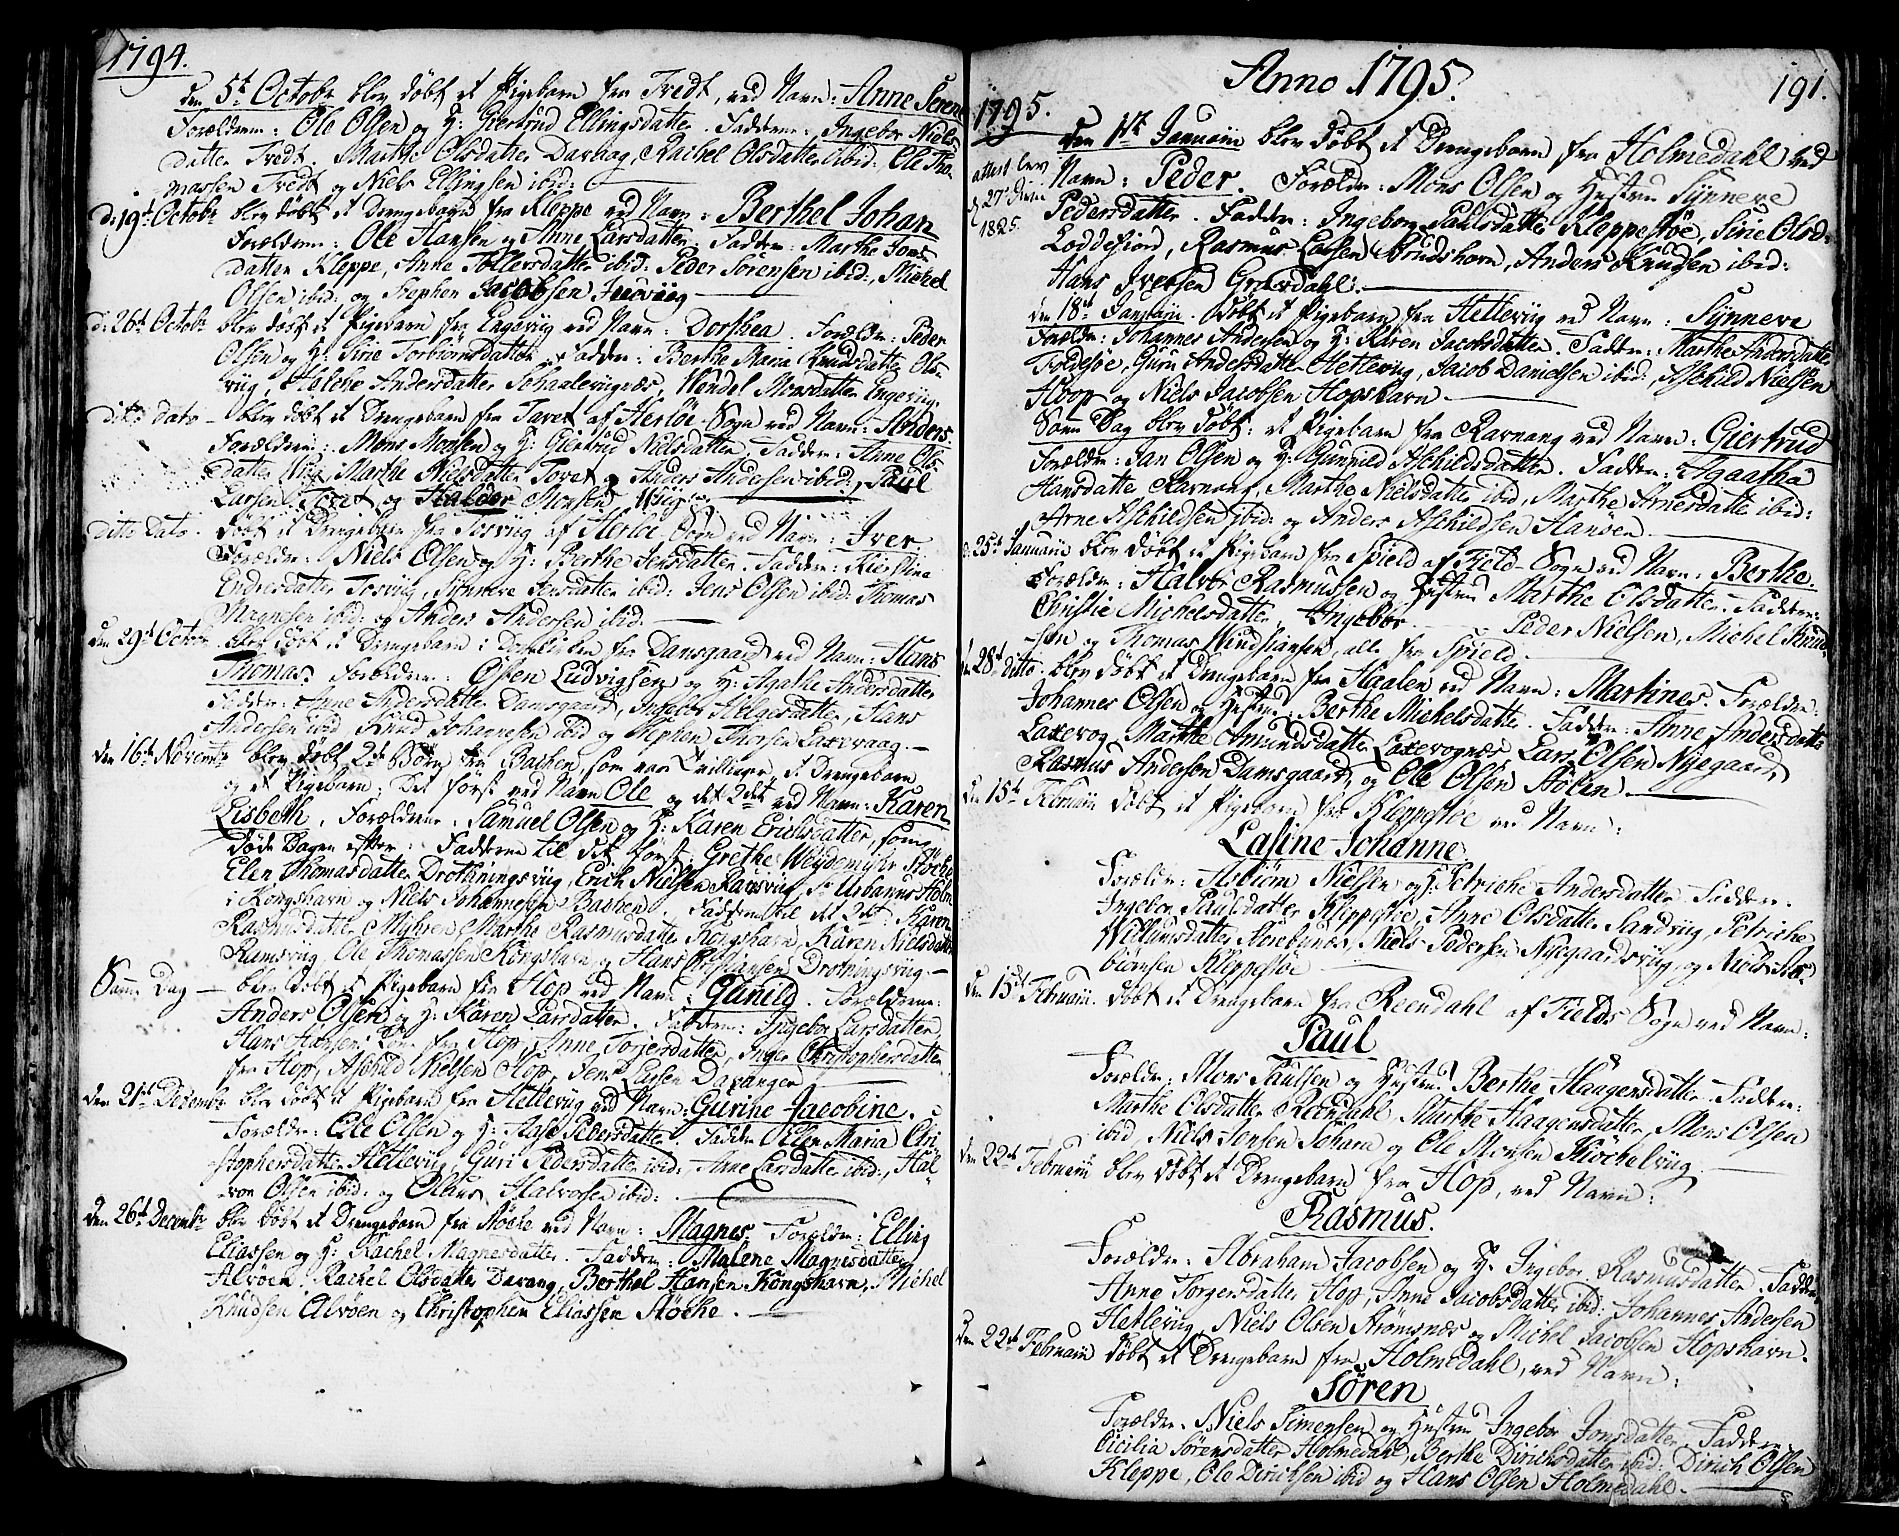 1794.
den 5t Octobr blev døbt et Pigebarn fra Tvedt, ved Navn: Anne Serene
Forældrene: Ole Olsen og H: Giertrud Ellingsdatter. Faddere: Ingebor Niels
datter Tvedt. Marthe Olsdatter Davhag, Rachel Olsdatter ibid: Ole Tho-
massen Tvedt og Niels Ellingsen ibid:
d: 19t Octobr blev døbt et Drengebarn fra Kleppe ved Navn: Berthel Johan
Forældrene: Ole Hansen og Anne Larsdatter. Faddere: Marthe Jons-
datter Kleppe, Anne Tollersdatter ibid: Peder Sørensen ibid:, Michel
Olsen ibid: og Stephen Jacobsen
d: 26t Octobr blev døbt et Pigebarn fra Engeviig ved Navn: Dorthea. Forældre: Peder
Olsen og H: Sirie Torbiörnsdatter. Faddere: Berthe Maria Knudsdatter Ols-
viig, Andersdatter Schaaleviignæs, Wendel Monsdatter Engeviig.
ditto dato – blev døbt et Drengebarn fra Tavet af Herløe-Sogn ved Navn: Anders.
Forældrene: Mons Monsen og H: Giertrud Nielsdatter. Faddere: Anne Ols-
datter Wiig, Marthe Nielsdatter Tovet og Anders Andersen ibid:, Paul
Larsen Tvet og Halder Monsen Wiig
ditto Dato. døbt et Drengebarn fra Tosviig af Herløe Sogn ved Navn: Iver
Forældre: Niels Olsen og H: Berthe Jensdatter. Faddere: Kierstine
Endresdatter Tosviig, Synneve Jensdatter ibid: Jens Olsen ibid: Thomas
Magnesen ibid: og Anders Andersen ibid:
den 29t Octobr blev døbt et Drengebarn i Domkirken fra Damsgaard ved Navn: Hans
Thomas. Forældrene: Olsen Ludvigsen og H: Agathe Andersdatter
Faddere: Anne Andersdatter Damsgaard, Ingebor Helgesdatter, Hans
Andersen ibid Knud Johannesen ibid og Stephen Thorsen Laxevaag.
den 16t Novembr blev døbt 2de Børn fra Backen som var Tvillinger, et Drengebarn
og et Pigebarn; det först ved Navn Ole og det 2det ved Navn: Karen
Lisbeth. Forældrene: Samuel Olsen og H: Karen Erichsdatter, som
døde Dagen efter: Faddere til det först: Grethe
Elen Thomasdatter Drothningsviig, Erich Nielsen Ramsviig, Sr Urbanus Holm
i Kongshavn og Niels Johannesen Backen. Faddere til det 2det: Karen
Rasmusdatter Myhren, Marthe Rasmusdatter Kongshavn, Karen Nielsdatter
Ramsviig, Ole Thomassen Kongshavn og Hans Christiansen Drotningsviig.
Samme Dag – blev døbt et Pigebarn fra Hop ved Navn: Gunild. Forældrene:
Anders Olsen og H: Karen Larsdatter. Faddere: Ingebor Larsdatter
Hans Hansens Kone fra Hop, Anne Torgersdatter, Inger Christophersdatter
fra Hop, Aschild Nielsen Hop, Jens Larsen Davanger
den 21t Decembr blev døbt et Pigebarn fra Hetleviig ved Navn: Gurine Jacobine.
Forældre: Ole Olsen og H: Aase Pedersdatter. Faddere Ellen Maria Chri-
stophersdatter Hetleviig, Guri Pedersdatter ibid: Anne Larsdatter ibid:, Hal-
vor Olsen ibid: og Olaus Halvorsen ibid:
den 26t Decembr blev døbt et Drengebarn fra Støcke ved Navn: Magnes. Forældre: Elling
Eliassen og H: Rachel Magnesdatter. Faddere: Malene Magnesdatter
Alvøen, Rachel Olsdatter Davang, Berthel Hansen Kongshavn, Michel
Knudsen Alvøen og Christopher Eliassen Støcke.
Anno 1795.
191.
1795.
den 1te Januarii blev døbt et Drengebarn fra Holmedahl ved
attest lev
d 27 Juni
1825.
Navn: Peder. Forældre: Mons Olsen og Hustrue Synneve
Pedersdatter. Faddere: Ingeborg Paulsdatter Kleppestøe, Sirie Olsd:
Loddefiord, Rasmus Larsen Brudshavn, Anders Knudsen ibid:
Hans Iversen Gravdahl.
den 18t Januarii. døbt et Pigebarn fra Hetleviig ved Navn: Synneve
Forældre: Johannes Andersen og H: Karen Jacobsdatter. Faddere: Marthe Andersdatter
Guru Andersdatter Hetleviig, Jacob Danielsen ibid:, Aschild Nielsen
Hoop og Niels Jacobsen Hopshavn.
Samme Dag blev døbt: et Pigebarn fra Ravnang ved Navn: Giertrud
Forældre: Jan Olsen og H: Gunnild Aschildsdatter. Faddere: Agaatha
Hansdatter Ravnang, Marthe Nielsdatter ibid, Marthe Arnesdatter ibid:
Arne Aschildsen ibid: og Anders Aschildsen Hanøen.
d: 25t Januarii blev døbt et Pigebarn fra Spield af Field-Sogn ved Navn: Berthe.
Forældre: Halvor Rasmussen og Hustrue Marthe Olsdatter. Faddere:
Christie Michelsdatter, Ingebor Peder Nielsen, Michel
sen og Thomas alle fra Spield.
den 28t ditto. blev døbt et Drengebarn fra Haalen ved Navn: Martines. Forældre:
Johannes Olsen og Hustrue: Berthe Michelsdatter. Faddere: Anne Andersdatter
Laxevog, Marthe Amundsdatter Laxevognæs, Lars Olsen Nyegaard,
Rasmus Andersen Damsgaard, og Ole Olsen Hølen.
den 15t Februarii døbt et Pigebarn fra Kleppestøe ved Navn:
Lasine Johanne
Forældre: Asbiørn Nielsen og H: Petriche Andersdatter. Faddere.
Ingebor Paulsdatter Kleppestøe, Anne Olsdatter Sandviig, Petriche
Willumsdatter Niels Pedersen Nyegaardsviig, og Niels As-
biørnsen Kleppestøe
den 15t Februarii. døbt et Drengebarn fra Reendahl af Fields Sogn ved Navn:
Paul
Forældre: Mons Paulsen og Hustrue Berthe Haagensdatter. Faddere:
Marthe Olsdatter Reendahl, Marthe Haagensdatter, Mons Olsen
ibid, Niels Jonsen og Ole Monsen Kiöchelviig
den 22de Februarii blev døbt et Drengebarn fra Hop, ved Navn:
Rasmus.
Forældre: Abraham Jacobsen og H: Ingebor Rasmusdatter. Faddere
Anne Torgersdatter Hop, Anne Jacobsdatter ibid: Johannes Andersen
Hetleviig, Niels Olsen Strømsnæs og Michel Jacobsen Hopshavn.
den 22de Februarii døbt et Drengebarn fra Holmedahl, ved Navn:
Søren
Forældre: Niels Simensen og Hustrue Ingebor Jonsdatter. Faddere
Cicilia Sørensdatter Holmedahl, Berthe Dirichsdatter ibid: Dirich Olsen
Kleppe, Ole Dirichsen ibid og Hans Olsen Holmedahl.